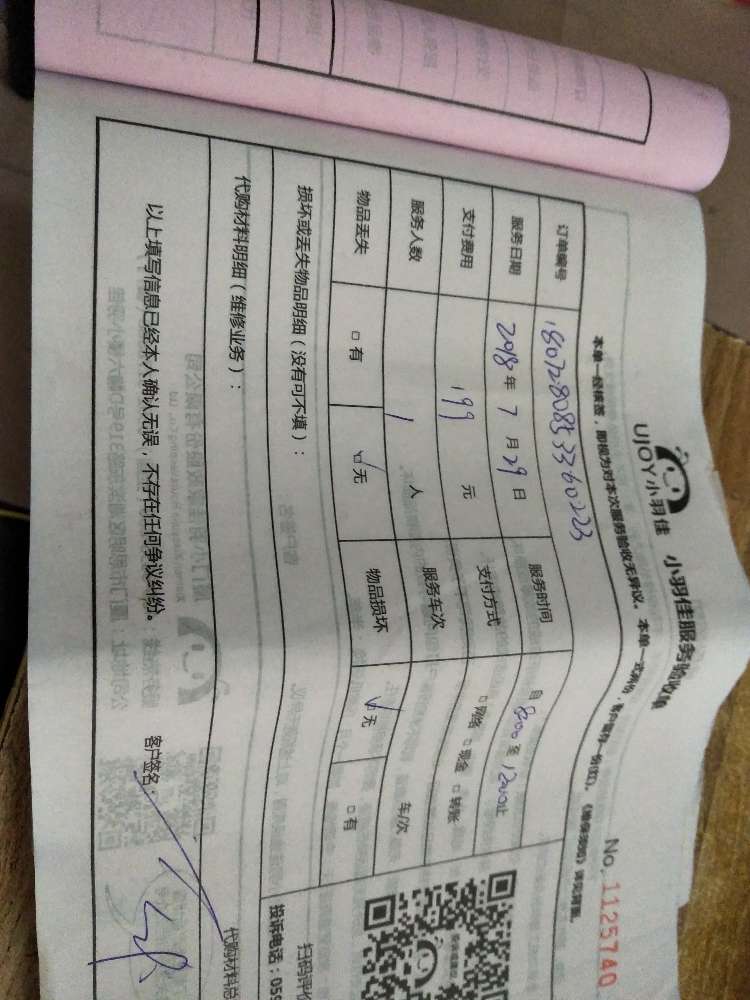 UJOY小羽佳 小羽佳服务验收单
No. 1125740
本单一经核签，即视为对本次服务验收无异议。本单一式两份，客户留存一份(红)。
订单编号 18072808533360223
服务日期 2018年7月29日 服务时间 自8:00至12:00止
支付费用 199元 支付方式 □网络 □现金 □转账
服务人数 1人 服务车次 车/次
物品丢失 □有 ☑无 物品损坏 ☑无 □有
损坏或丢失物品明细（没有可不填）：
扫码评价
投诉电话：059
代购材料明细（维修业务）：
代购材料总
以上填写信息已经本人确认无误，不存在任何争议纠纷。 客户签名：